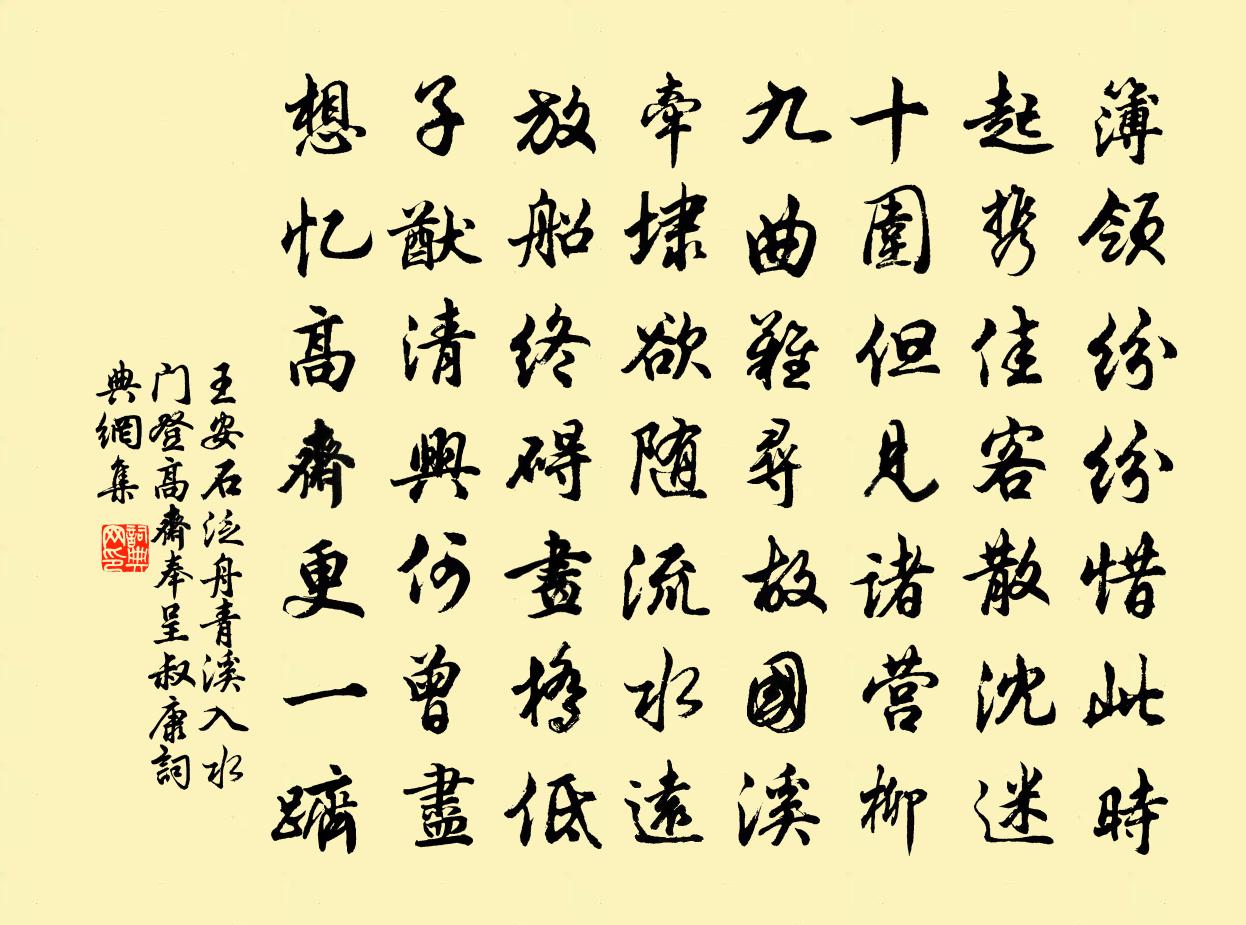 簿领纷纷惜此時
起携佳客散沈迷
十圍但見諸营柳
九曲難尋故國溪
牽埭欲随流水遠
放船终碍畫橋低
子猷清興何曾盡
想忆高齋更一躋
王安石泛舟青溪入水
门登高齋奉呈叔康詞
典網集
詞典
网印